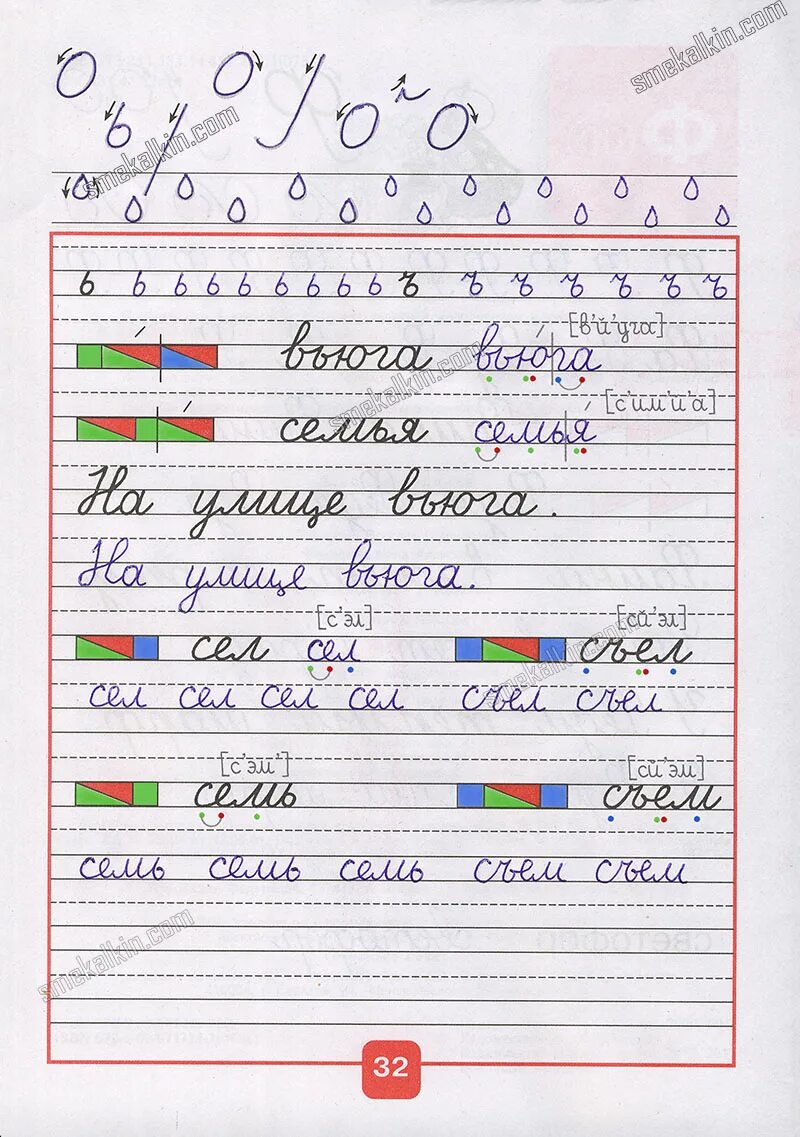 smekalkin.com
smekalkin.com
ь ь ь ь ь ь ь ь ь ъ ъ ъ ъ ъ ъ ъ
[в'й'уга]
вьюга вьюга
smekalkin.com
[с'им'й'а]
семья семья
На улице вьюга.
На улице вьюга.
[с'эл] [сй'эл]
сел сел съел
smekalkin.com
сел сел сел сел съел съел
[с'эм'] [сй'эм]
семь съем
семь семь семь съем съем
smekalkin.com
32